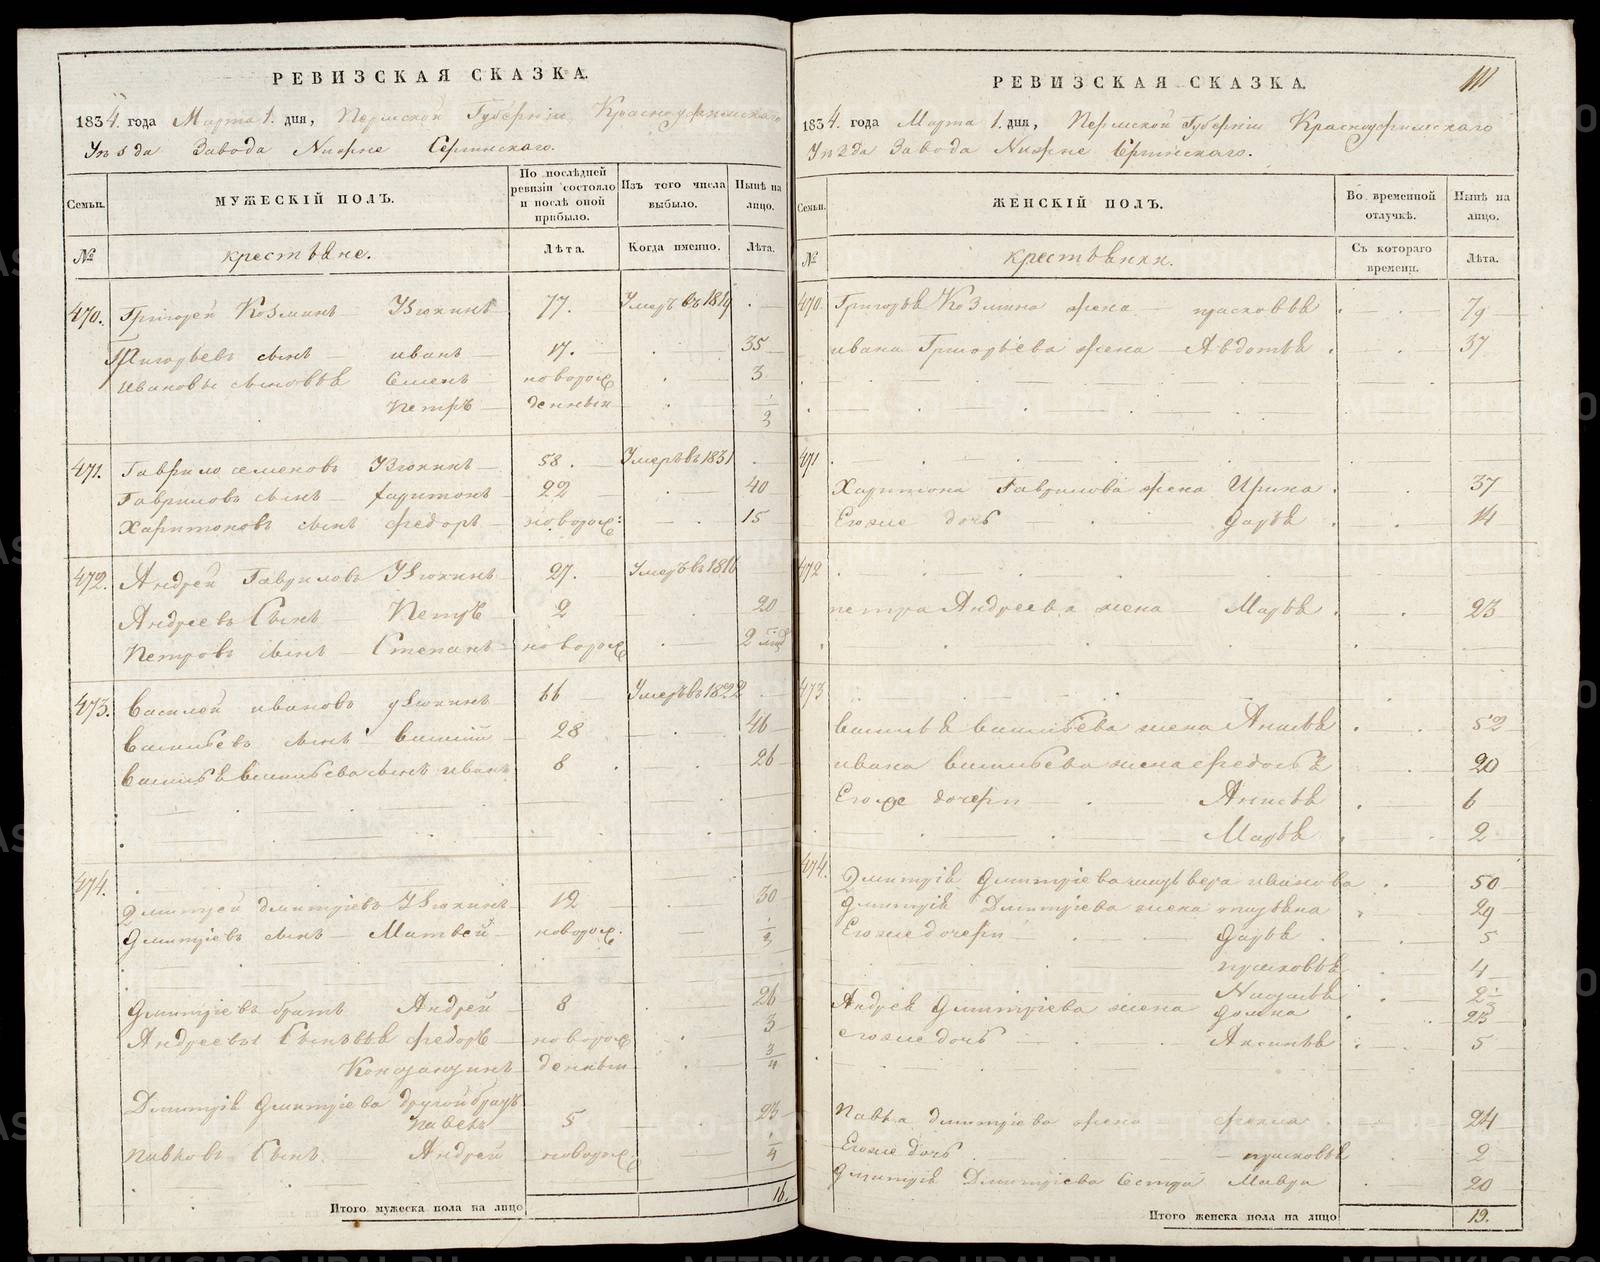 РЕВИЗСКАЯ СКАЗКА.
1834. года Марта 1. дня, Пермской Губерніи Красноуфимскаго
Уѣзда Завода Нижне Сергинскаго.
Семьи.
МУЖЕСКІЙ ПОЛЪ.
По послѣдней ревизіи состояло и послѣ оной прибыло.
Изъ того числа выбыло.
Нынѣ на лицо.
№
крестьяне.
Лѣта.
Когда именно.
Лѣта.
470. Григорей Козминъ 77. Умеръ въ 1819
Григорьевъ сынъ иванъ 17. 35
Ивановы сыновья Семенъ новорож 3
Петръ денныи 1/2
471. Гаврило семеновъ 58. Умеръ въ 1831
Гавриловъ сынъ Харитонъ 22 40
Харитоновъ сынъ федоръ новорож: 15
472. Андрей Гавриловъ 27. Умеръ въ 1816
Андреевъ Сынъ Петръ 2 20
Петровъ сынъ Степанъ новорож 2
473. Василей ивановъ 66 Умеръ въ 1822
Васильевъ сынъ Василий 28 46
Василья Васильева сынъ иванъ 8 26
474.
Дмитрей дмитріевъ 12 30
Дмитріевъ сынъ Матвей новорож. 1/2
Дмитріевъ братъ Андрей 8 26
Андреевы Сыновья федоръ новорож 3
Констянтинъ денныи 3/4
Дмитрія Дмитріева другой братъ
Павелъ 5 23
Павловъ Сынъ Андрей новорож: 1/4
Итого мужеска пола на лицо 16.
РЕВИЗСКАЯ СКАЗКА.
111
1834. года Марта 1. дня, Пермской Губерніи Красноуфимскаго
Уѣзда Завода Нижне Сергинскаго.
Семьи.
ЖЕНСКІЙ ПОЛЪ.
Во временной отлучкѣ.
Нынѣ на лицо.
№
крестьянки.
Съ котораго времени.
Лѣта.
470. Григорья Козмина жена прасковья 79
ивана Григорьева жена Авдотья 37
471
Харитона Гаврилова жена Ирина 37
Егоже дочь Дарья 14
472
петра Андреева жена Марья 23
473
Василья Васильева жена Анисья 52
ивана Васильева жена федосья 20
Егоже дочери Анисья 6
Марья 2
474. Дмитрія Дмитріева вера иванова 50
Дмитрія Дмитріева жена 29
Егоже дочери Дарья 5
прасковья 4
Андрея Дмитріева жена Домна 23
егоже дочь Аксинья 5
Павла дмитріева жена фекла 24
Егоже дочь прасковья 2
Дмитрія Дмитріева Сестра Мавра 20
Итого женска пола на лицо 19.